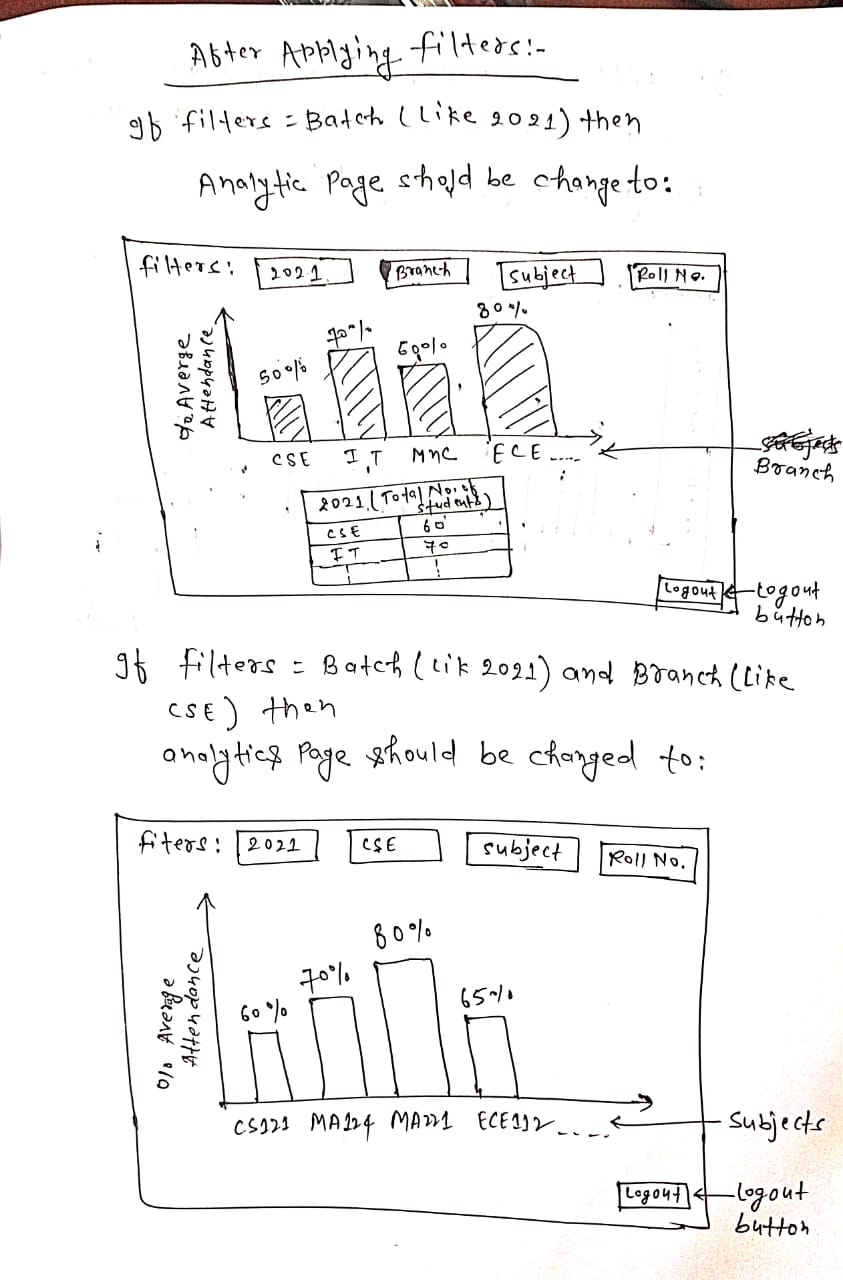 After Applying filters:-
If filters = Batch (Like 2021) then
Analytic Page shold be change to:
filters: 2021 Branch Subject Roll No.
% Averge
Attendance
50%
70%
60%
80%
CSE IT MNC ECE .....
Branch
2021 (Total No. of
students)
CSE 60
IT 70
Logout
Logout
button
If filters = Batch (lik 2021) and Branch (like
CSE) then
analytics Page should be changed to:
fiters: 2021 CSE subject Roll No.
% Average
Attendance
60%
70%
80%
65%
CS121 MA124 MA221 ECE112 .....
Subjects
Logout
Logout
button